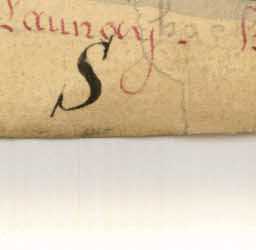 Launay -
S